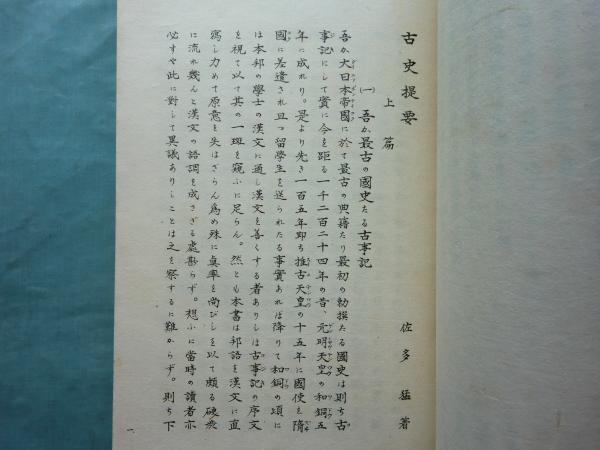 古史提要
佐多猛著
上篇
(一)吾か最古の國史たる古事記
吾か大日本帝國に於て最古の典籍たり最初の勅撰たる國史は則ち古
事記にして實に今を距る一千二百二十四年の昔、元明天皇の和銅五
年に成れり。是より先き一百五年即ち推古天皇の十五年に國使を隋
國に差遣され且つ留學生を送られたる事實あれば降りて和銅の頃に
は本邦の學士の漢文に通し漢文を善くする者ありしは古事記の序文
を視て以て其の一斑を窺ふに足らん。然とも本書は邦語を漢文に直
寫し力めて原意を失はざらん爲め殊に眞率を尚びしを以て頗る破
に流れ幾んと漢文の語調を成さざる處尠らず。想ふに當時の讀者亦
必すや此に對して異議ありしことは之を察するに難からず。則ち下
一